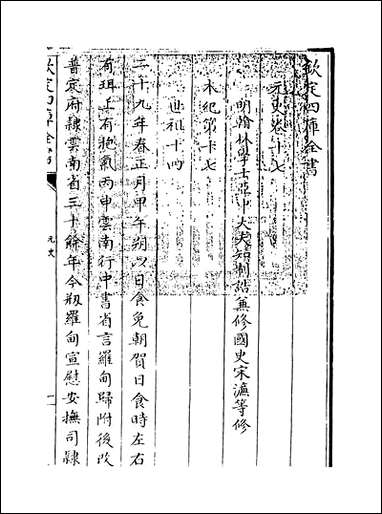 欽定四庫全書
元史卷十七
明翰林學士亞中大夫知制誥兼修國史宋濂等修
本紀第十七
世祖十四
二十九年春正月甲午朔以日食免朝賀日食時左右
有珥上有抱氣丙申雲南行中書省言羅甸歸附後改
普定府隸雲南省三十餘年今刱羅甸宣慰安撫司隸
欽定四庫全書
元史
一